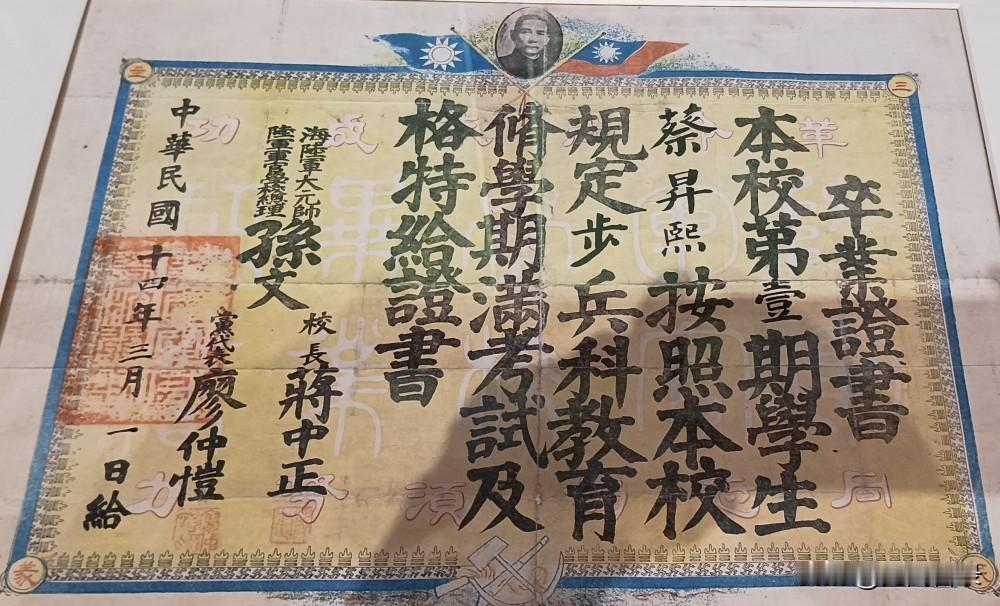 卒業證書
本校第壹期學生
蔡昇熙按照本校
規定步兵科教育
修學期滿考試及
格特給證書
海陸軍大元帥
陸軍軍官學校總理
孫文
校長蔣中正
黨代表廖仲愷
中華民國十四年三月一日給
革 成功
同 須努力
三